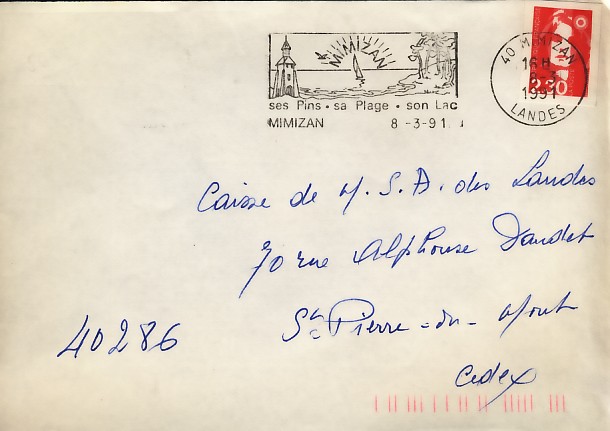 MIMIZAN
ses Pins • sa Plage • son Lac
MIMIZAN 8 -3-91
40 MIMIZAN
16 H
8-3
1991
LANDES
2,30
Caisse de M.S.A. des Landes
70 rue Alphonse Daudet
St Pierre-du-Mont
40286
Cedex